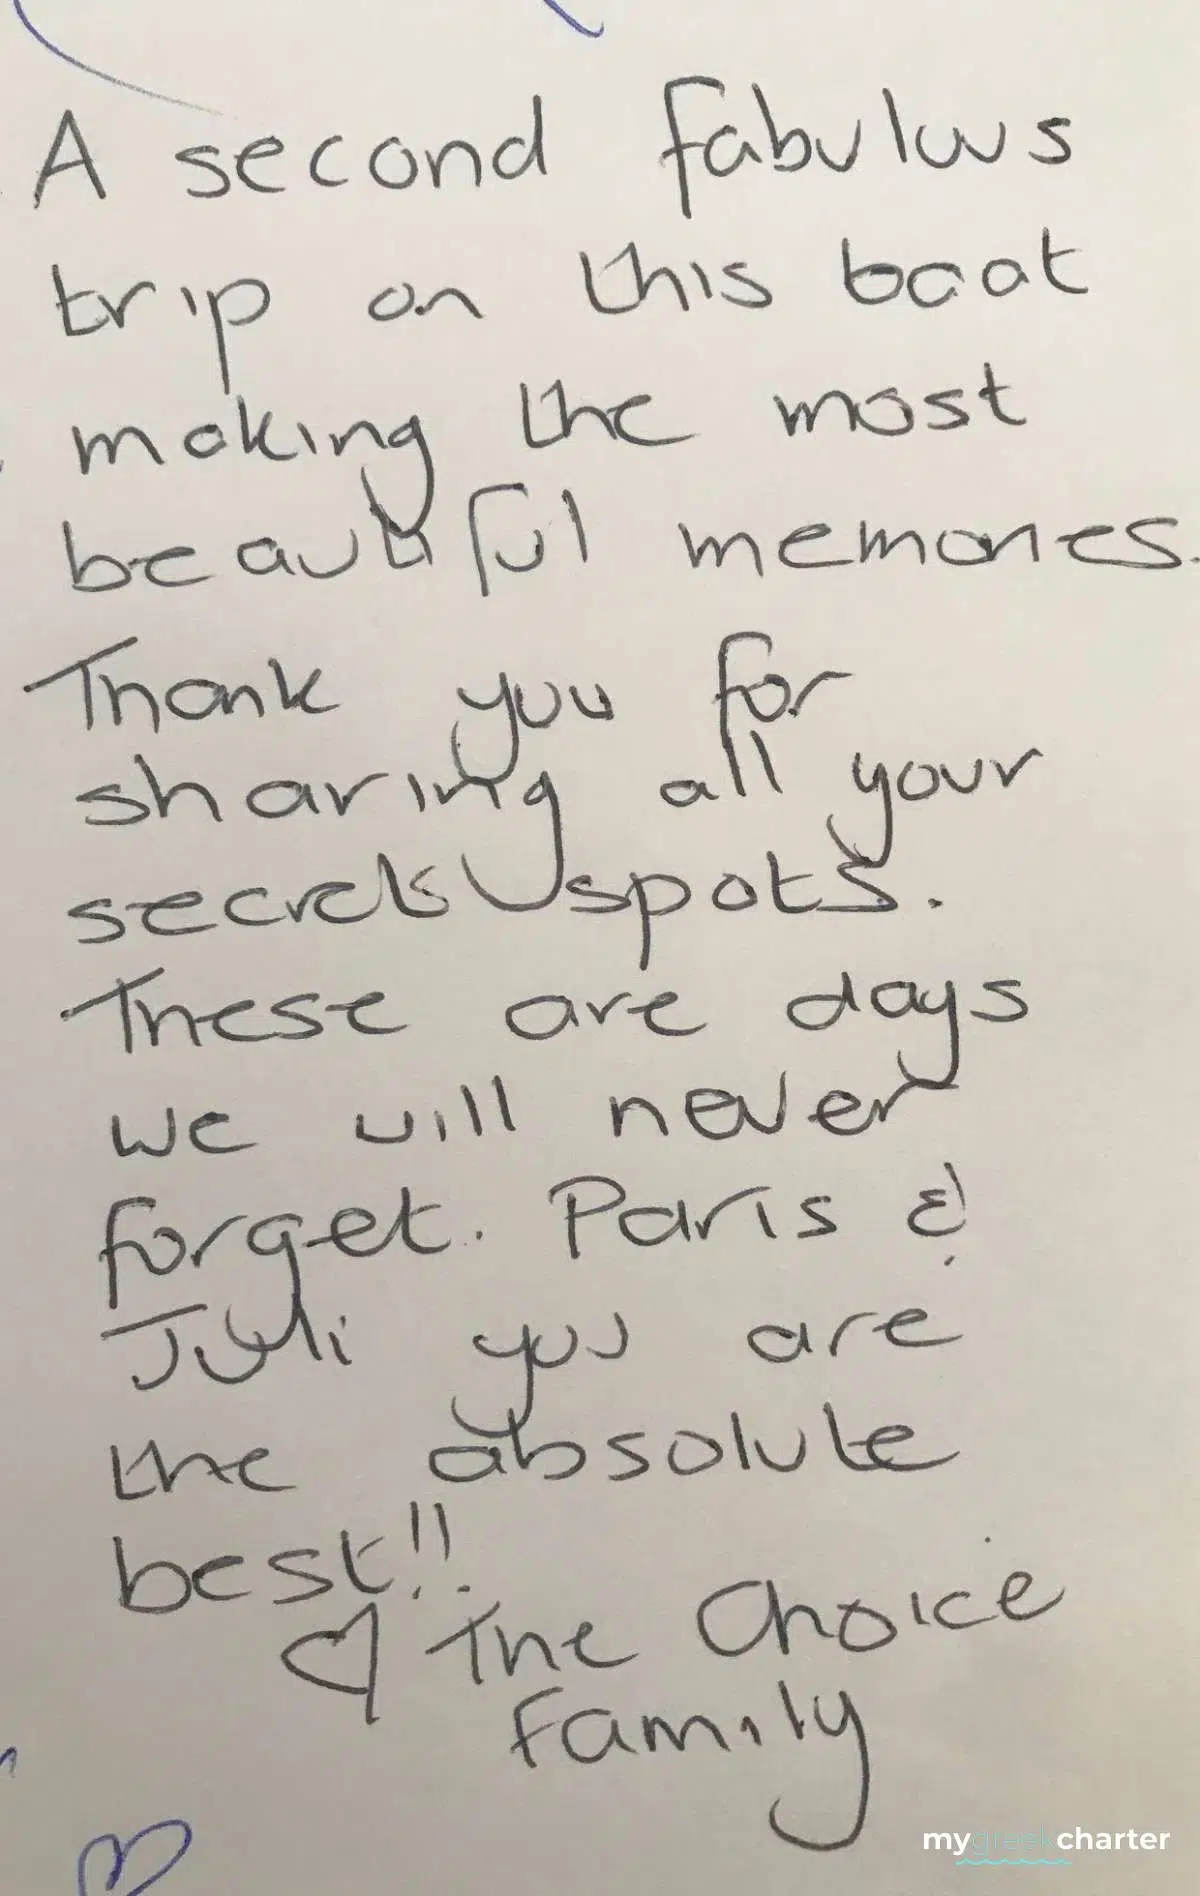 A second fabulous
trip on this boat
making the most
beautiful memories.
Thank you for
sharing all your
secret spots.
These are days
we will never
forget. Paris &
Juli you are
the absolute
best!!
♡ The Choice
Family
mygreekcharter